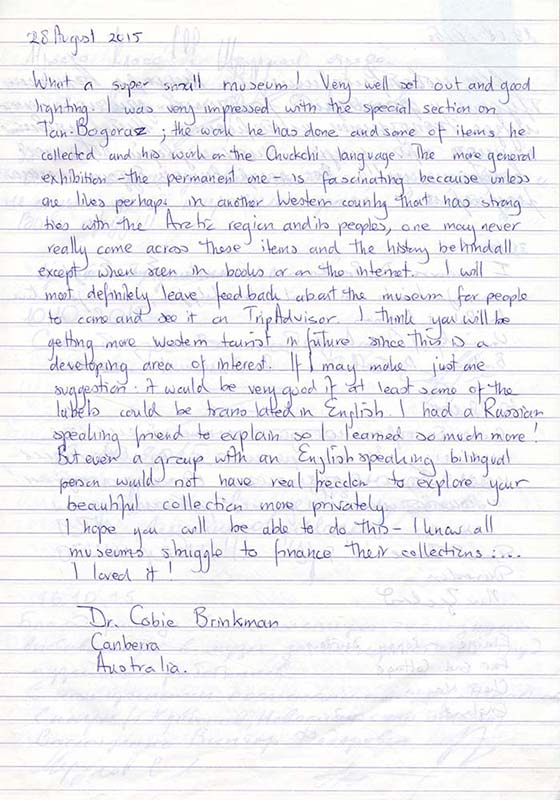 28 August 2015
What a super small museum! Very well set out and good
lighting. I was very impressed with the special section on
Tan-Bogoraz; the work he has done and some of items he
collected and his work on the Chuckchi language. The more general
exhibition - the permanent one - is fascinating because unless
one lives perhaps in another Western county that has strong
ties with the Arctic region and its peoples, one may never
really come across these items and the history behind all
except when seen in books or on the internet. I will
most definitely leave feedback about the museum for people
to come and see it on TripAdvisor. I think you will be
getting more western tourist in future since this is a
developing area of interest. If I may make just one
suggestion: it would be very good if at least some of the
labels could be translated in English. I had a Russian
speaking friend to explain so I learned so much more!
But even a group with an English speaking bilingual
person would not have real freedom to explore your
beautiful collection more privately
I hope you will be able to do this - I know all
museums struggle to finance their collections....
I loved it!
Dr. Cobie Brinkman
Canberra
Australia.